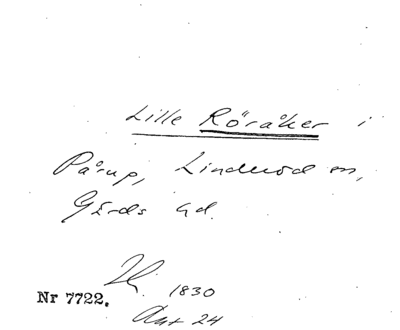 Lille Röråker i
Pårup, Linderöd sn,
Gärds hd.
1830
Nr 7722.
Akt 24